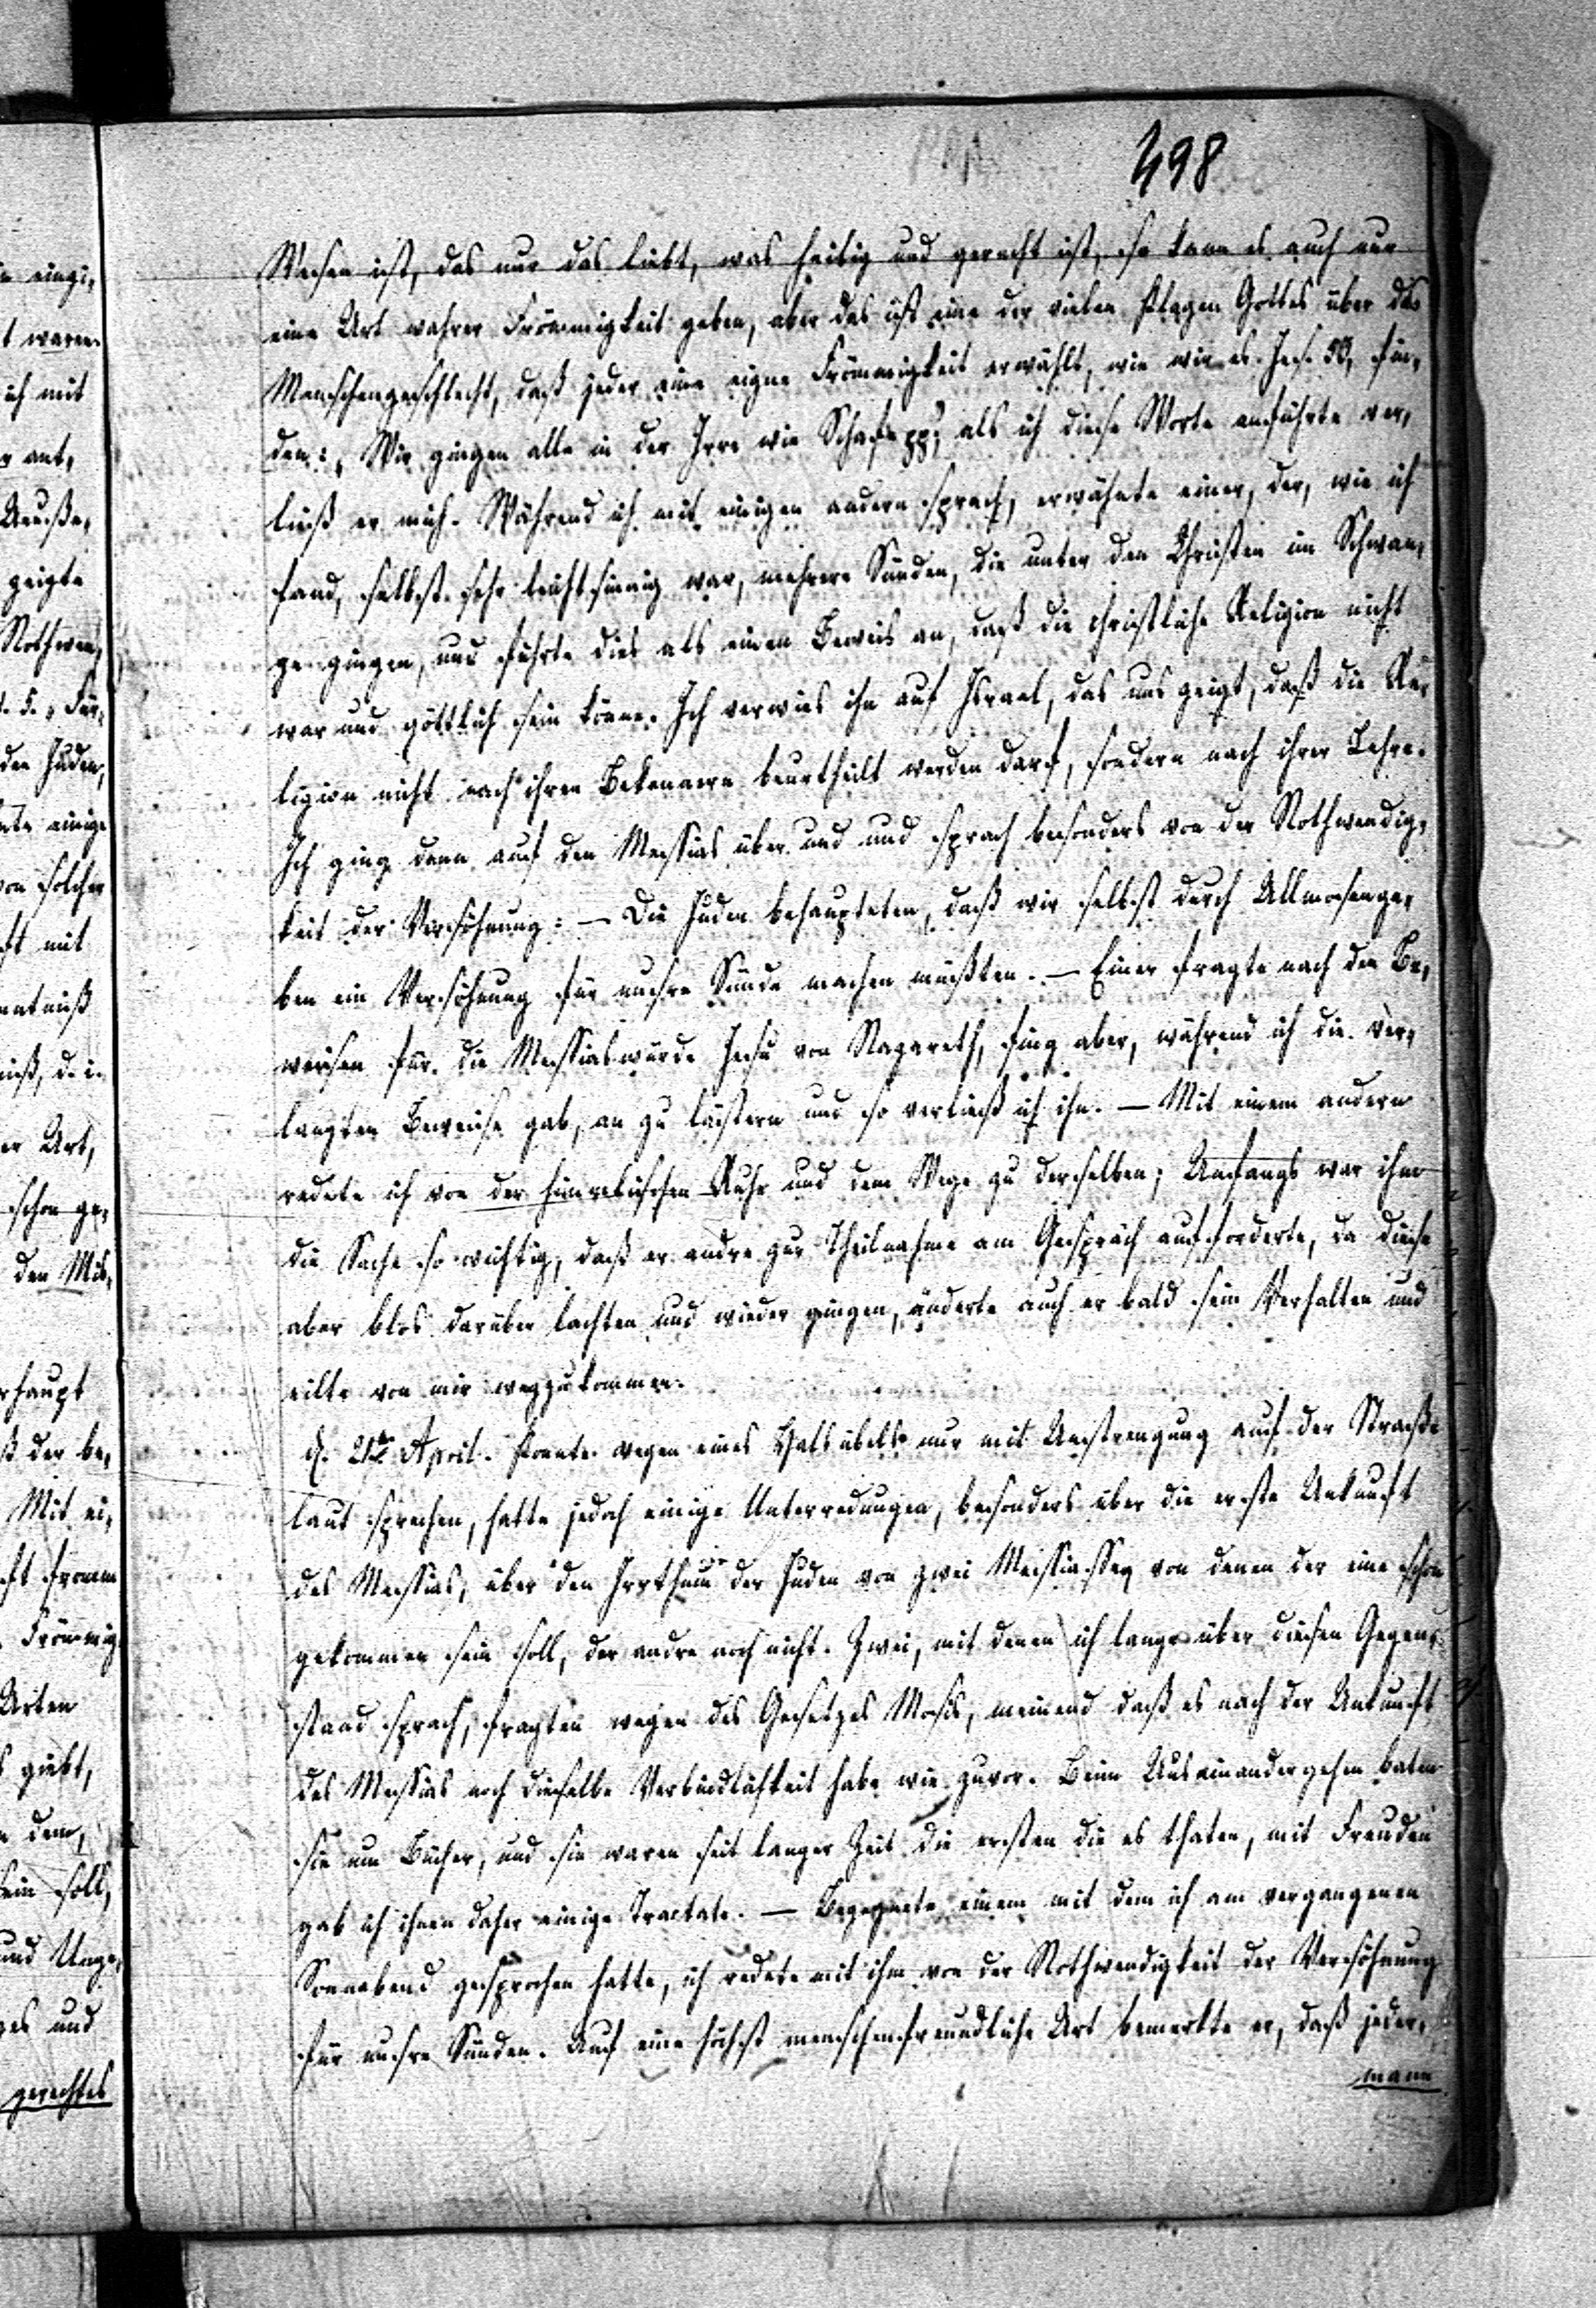 498
Wesen ist, das nur das liebt, was heilig und gerecht ist, so kann es auch nur
eine Art wahrer Frömmigkeit geben, aber das ist eine der vielen Plagen Gottes über das
Menschengeschlecht, daß jeder eine eigne Frömmigkeit erwählt, wie wir es Jes. 53, fin„
den: „Wir gingen alle in der Irre wie Schafe pp", als ich diese Worte anführte ver„
ließ er mich. Während ich mit einigen andern sprach, erwähnte einer, der, wie ich
fand, selbst sehr leichtsinnig war, mehrere Sünden, die unter den Christen im Schwan„
ge gingen, und führte dies als einen Beweis an, daß die christliche Religion nicht
war und göttlich sein könne. Ich verwies ihn auf Israel, das uns zeigt, daß die Re„
ligion nicht nach ihren Bekennern beurtheilt werden darf, sondern nach ihrer Lehre.
Ich ging dann auf den Messias über und und sprach besonders von der Nothwendig„
keit der Versöhnung: — Die Juden behaupteten, daß wir selbst durch Allmosenge„
ben ein Versöhnung für unsre Sünde machen müßten. — Einer fragte nach den Be„
weisen für die Messiaswürde Jesu von Nazareth, fing aber, während ich die ver„
langten Beweise gab, an zu lästern und so verließ ich ihn. — Mit einem andern
redete ich von der himmlischen Ruhe und dem Wege zu derselben; Anfangs war ihm
die Sache so wichtig, daß er andre zur Theilnahme am Gespräch aufforderte, da diese
aber blos darüber lachten und wieder gingen, änderte auch er bald sein Verhalten und
eilte von mir wegzukommen.
d. 21te April. Konnte wegen eines Halsübels nur mit Anstrengung auf der Straße
laut sprechen, hatte jedoch einige Unterredungen, besonders über die erste Ankunft
des Messias, über den Irrthum der Juden von zwei Messiassen, von denen der eine schon
gekommen sein soll, der andre noch nicht. Zwei, mit denen ich lange über diesen Gegen„
stand sprach, fragten wegen des Gesetzes Mosis, meinend daß es nach der Ankunft
des Messias noch dieselbe Verbindlichkeit habe wie zuvor. Beim Auseinandergehen baten
sie um Bücher, und sie waren seit langer Zeit die ersten die es thaten, mit Freuden
gab ich ihnen daher einige Tractate. — Begegnete einem mit dem ich am vergangenen
Sonnabend gesprochen hatte, ich redete mit ihm von der Nothwendigkeit der Versöhnung
für unsre Sünden. Auf eine höchst menschenfreundliche Art bemerkte er, daß jeder„
mann